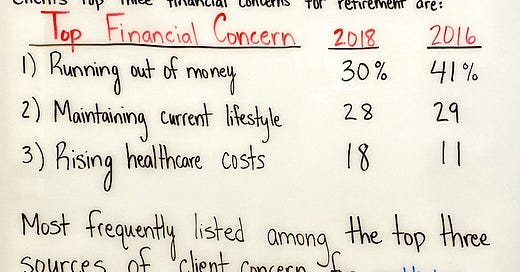 Clients top three financial concerns for retirement are:
Top Financial Concern 2018 2016
1) Running out of money 30% 41%
2) Maintaining current lifestyle 28 29
3) Rising healthcare costs 18 11
Most frequently listed among the top three
sources of client concern